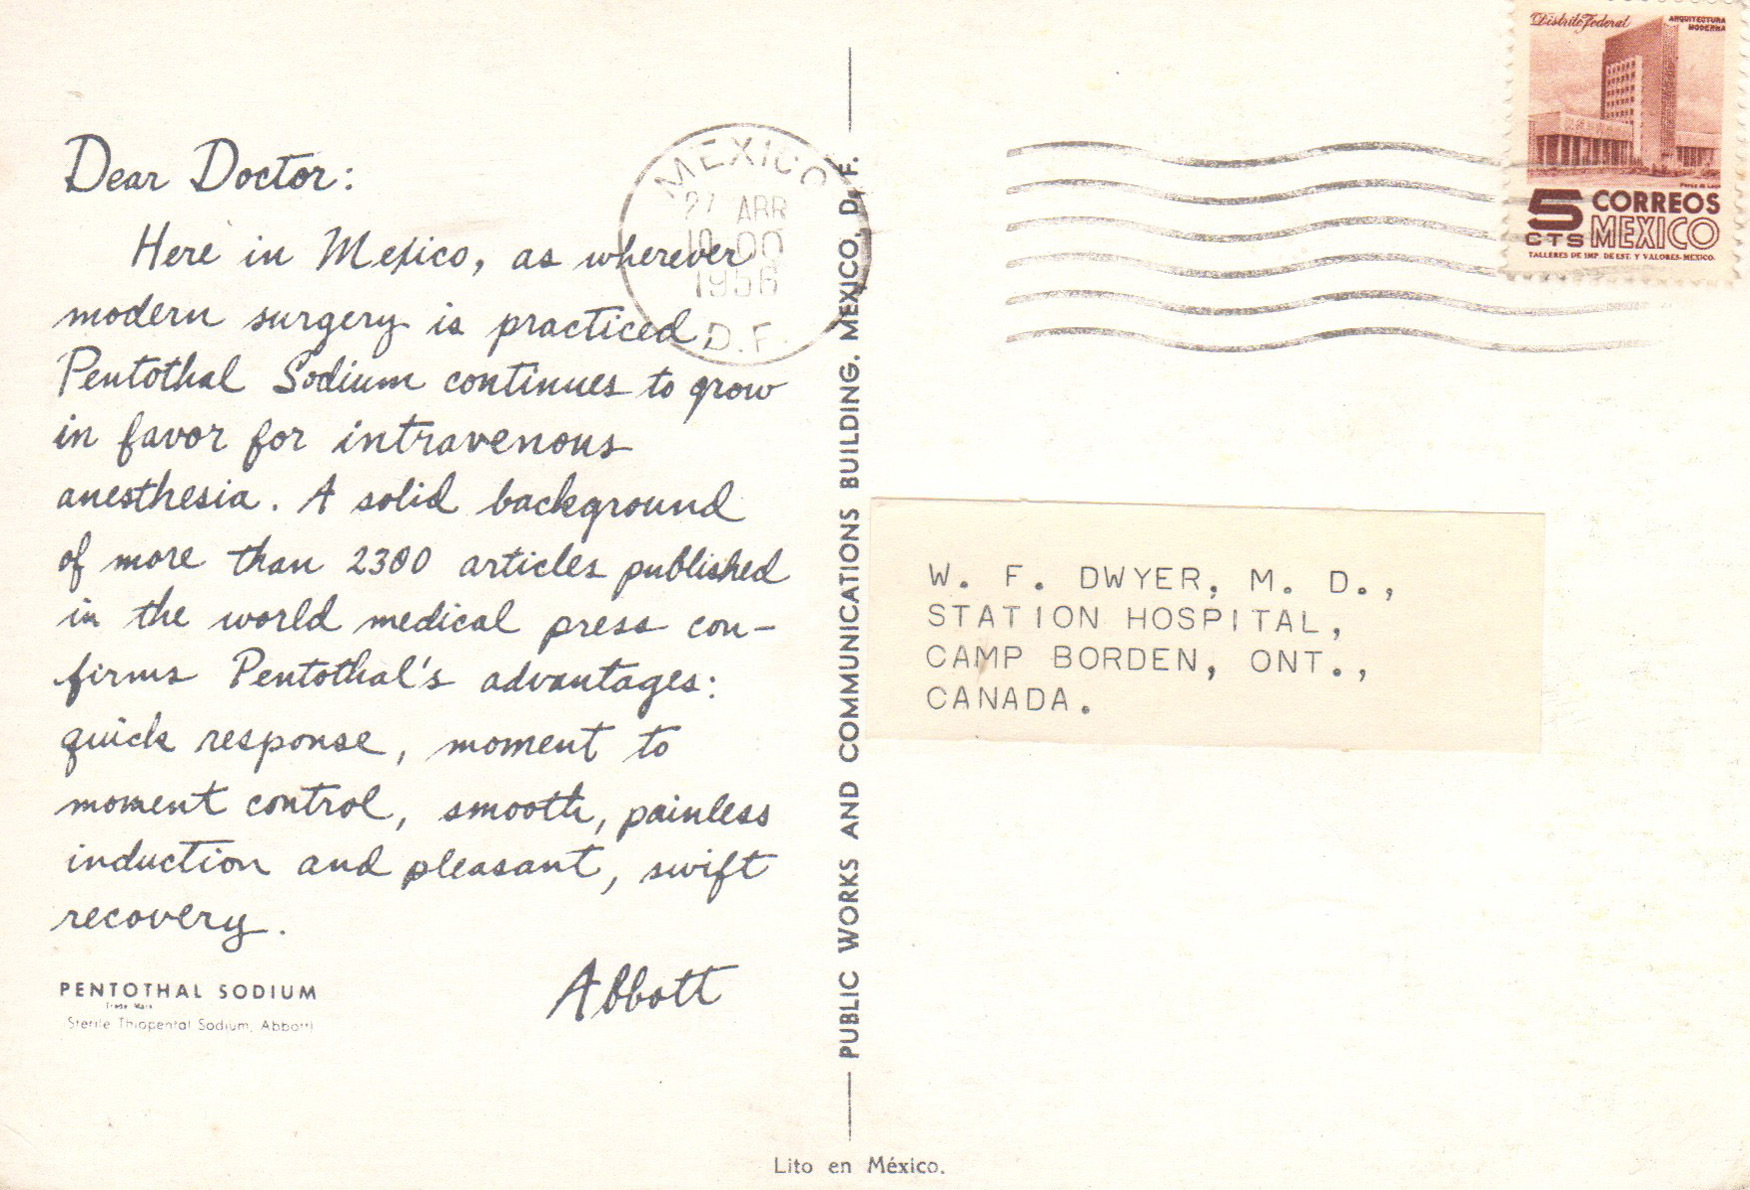 Dear Doctor:
Here in Mexico, as wherever
modern surgery is practiced,
Pentothal Sodium continues to grow
in favor for intravenous
anesthesia. A solid background
of more than 2300 articles published
in the world medical press con-
firms Pentothal's advantages:
quick response, moment to
moment control, smooth, painless
induction and pleasant, swift
recovery.
Abbott
PENTOTHAL SODIUM
Trade Mark
(Sterile Thiopental Sodium, Abbott)
MEXICO
27 ABR
10 00
1956
D.F.
PUBLIC WORKS AND COMMUNICATIONS BUILDING. MEXICO, D. F.
Lito en México.
Distrito Federal
ARQUITECTURA
MODERNA
5 CTS
CORREOS
MEXICO
TALLERES DE IMP. DE EST. Y VALORES-MEXICO.
W. F. DWYER, M. D.,
STATION HOSPITAL,
CAMP BORDEN, ONT.,
CANADA.